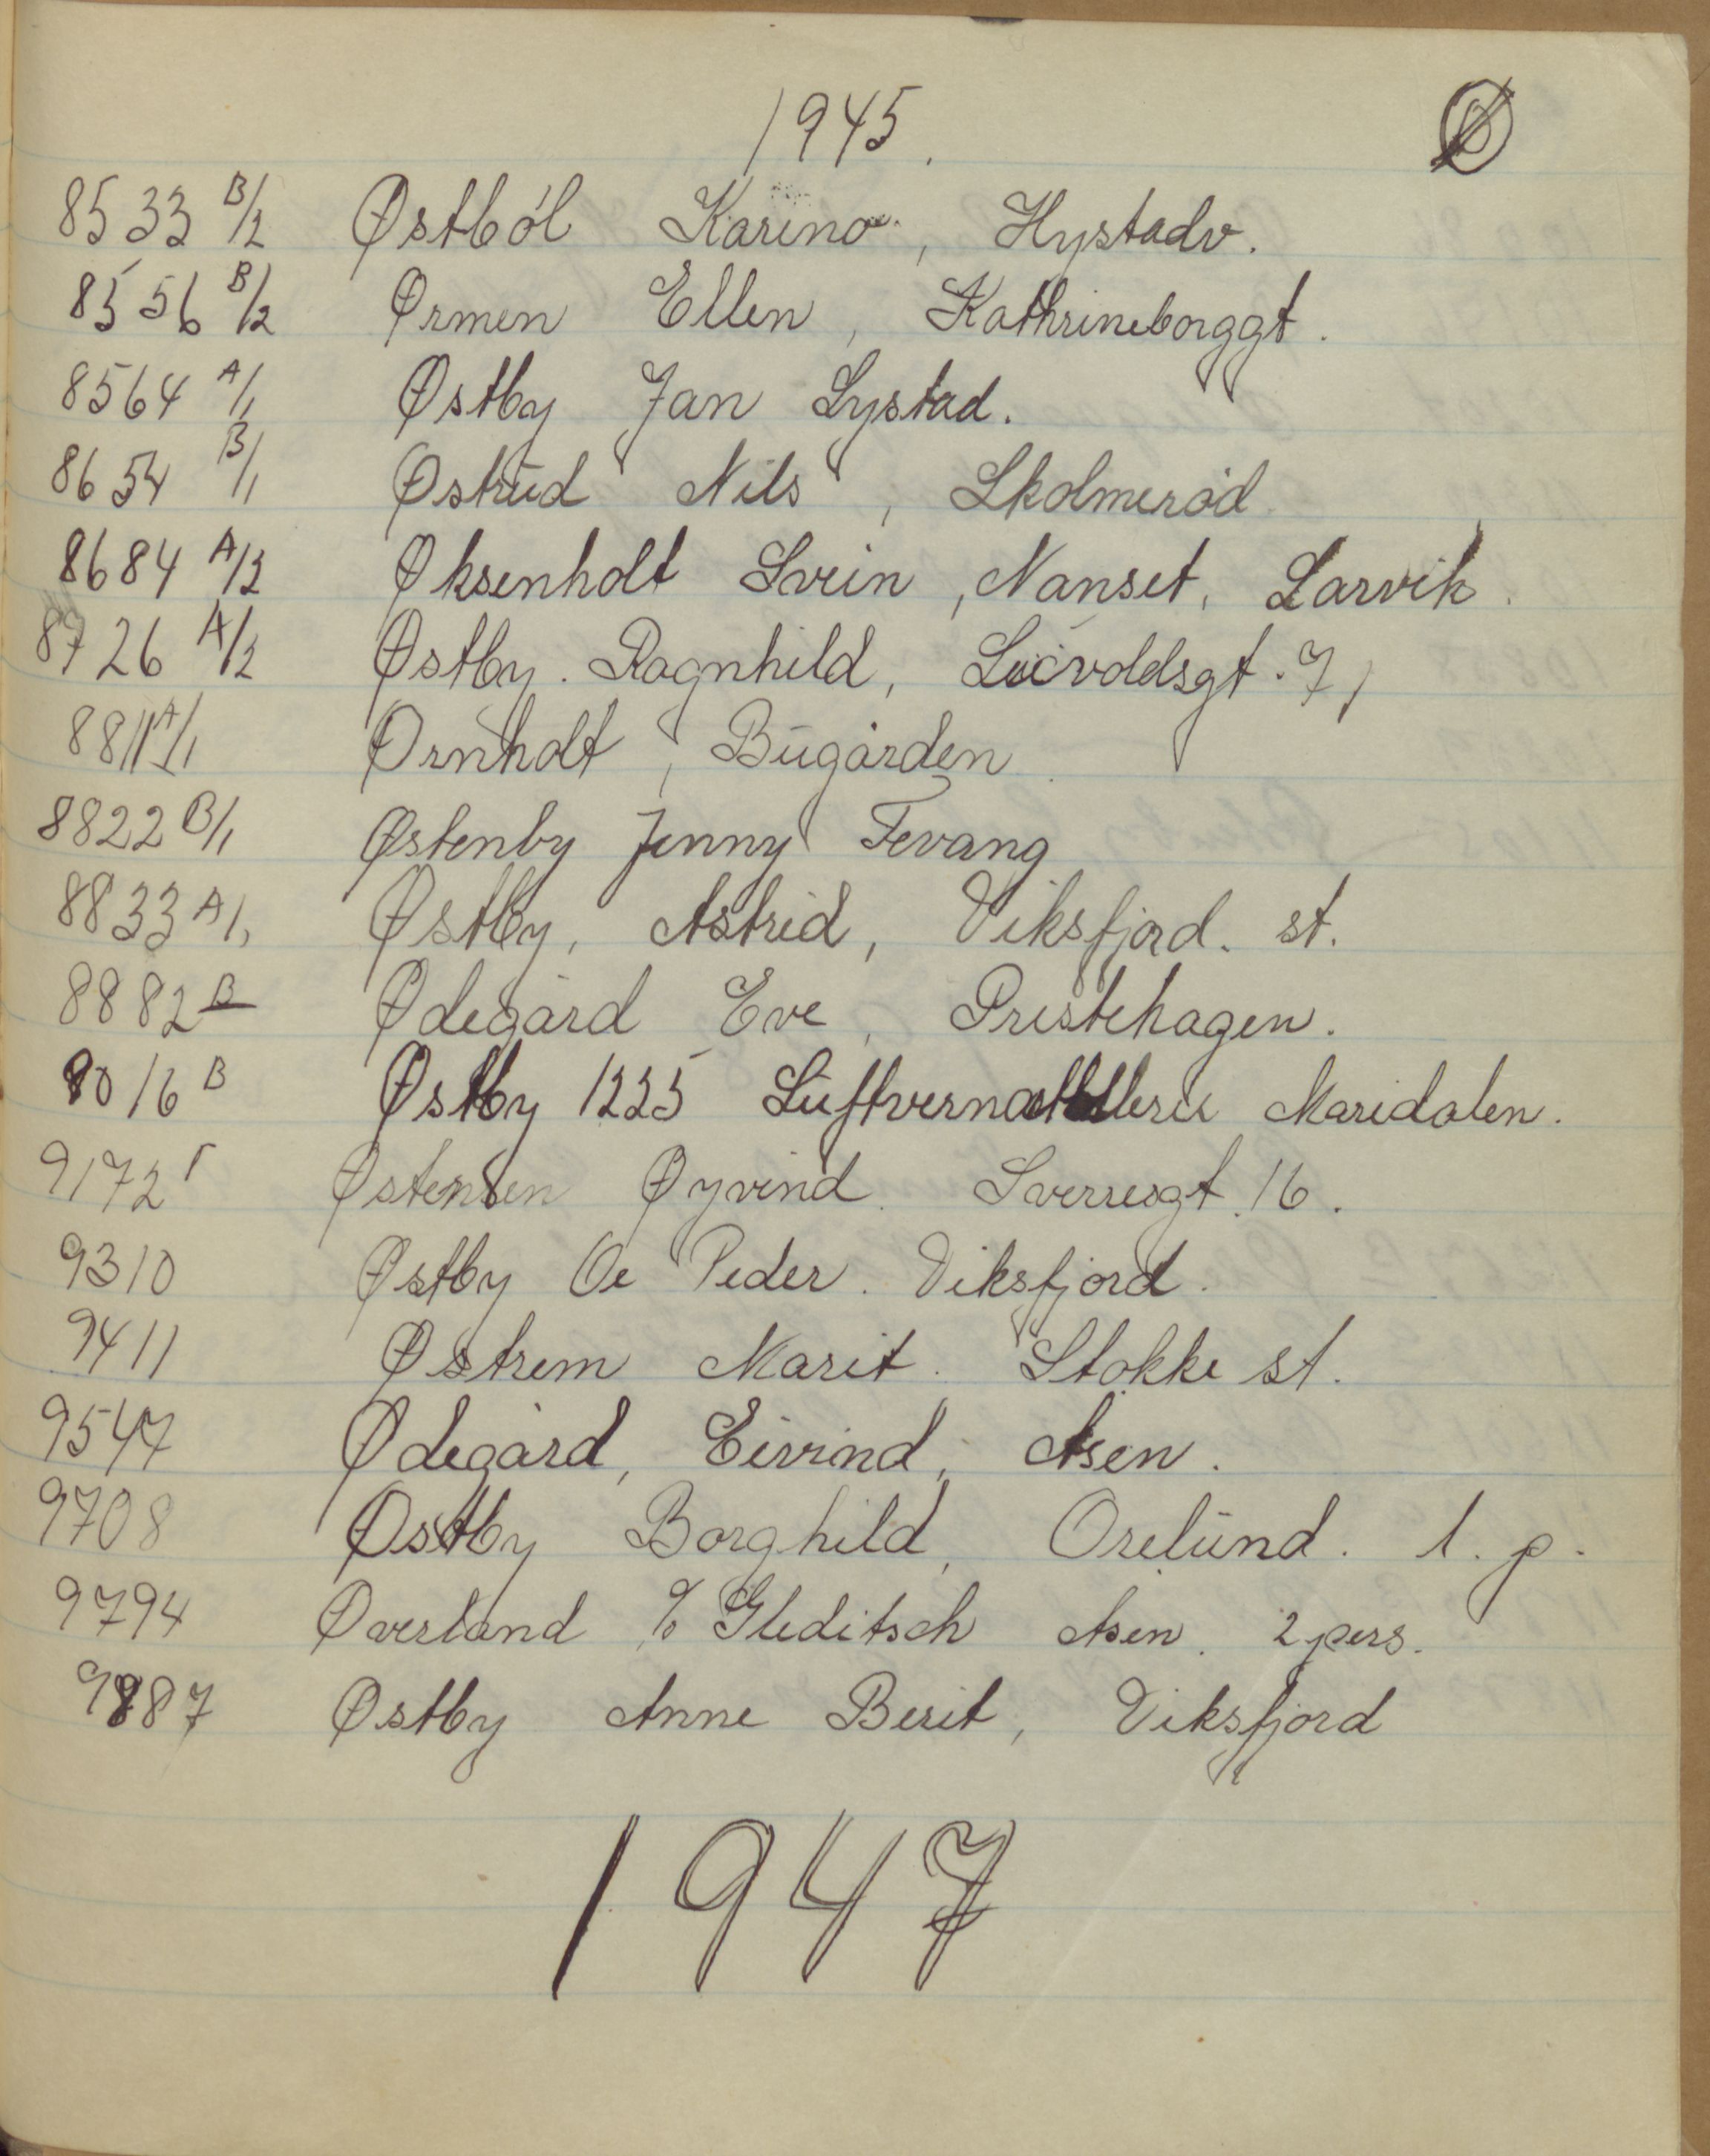 1945. Ø
8533 B/2 Østbøl Karina, Hystadv.
8556 B/2 Ørmen Ellen, Kathrineborggt.
8564 A/1 Østby Jan Lystad.
8654 B/1 Østrud Nils, Skolmerød
8684 A/2 Øksenholt Svein, Nanset, Larvik.
8726 A/2 Østby. Ragnhild, Løvoldsgt. 7,
8811 A/1 Ørnholt, Bugården.
8822 B/1 Østenby Jenny Fevang
8833 A/1 Østby, Astrid, Viksfjord. st.
8882 B Ødegård Eve, Prestehagen.
9016 B Østby 1225 Luftvernartilleri Maridalen.
9172 Østensen Øyvind. Sverresgt. 16.
9310 Østby Ole Peder. Viksfjord.
9411 Østrem Marit. Stokke st.
9547 Ødegård, Eivind, Åsen.
9708 Østby Borghild, Orelund. 1. p.
9794 Øverland, % Gleditsch Åsen. 2 pers.
9887 Østby Anne Berit, Viksfjord
1947